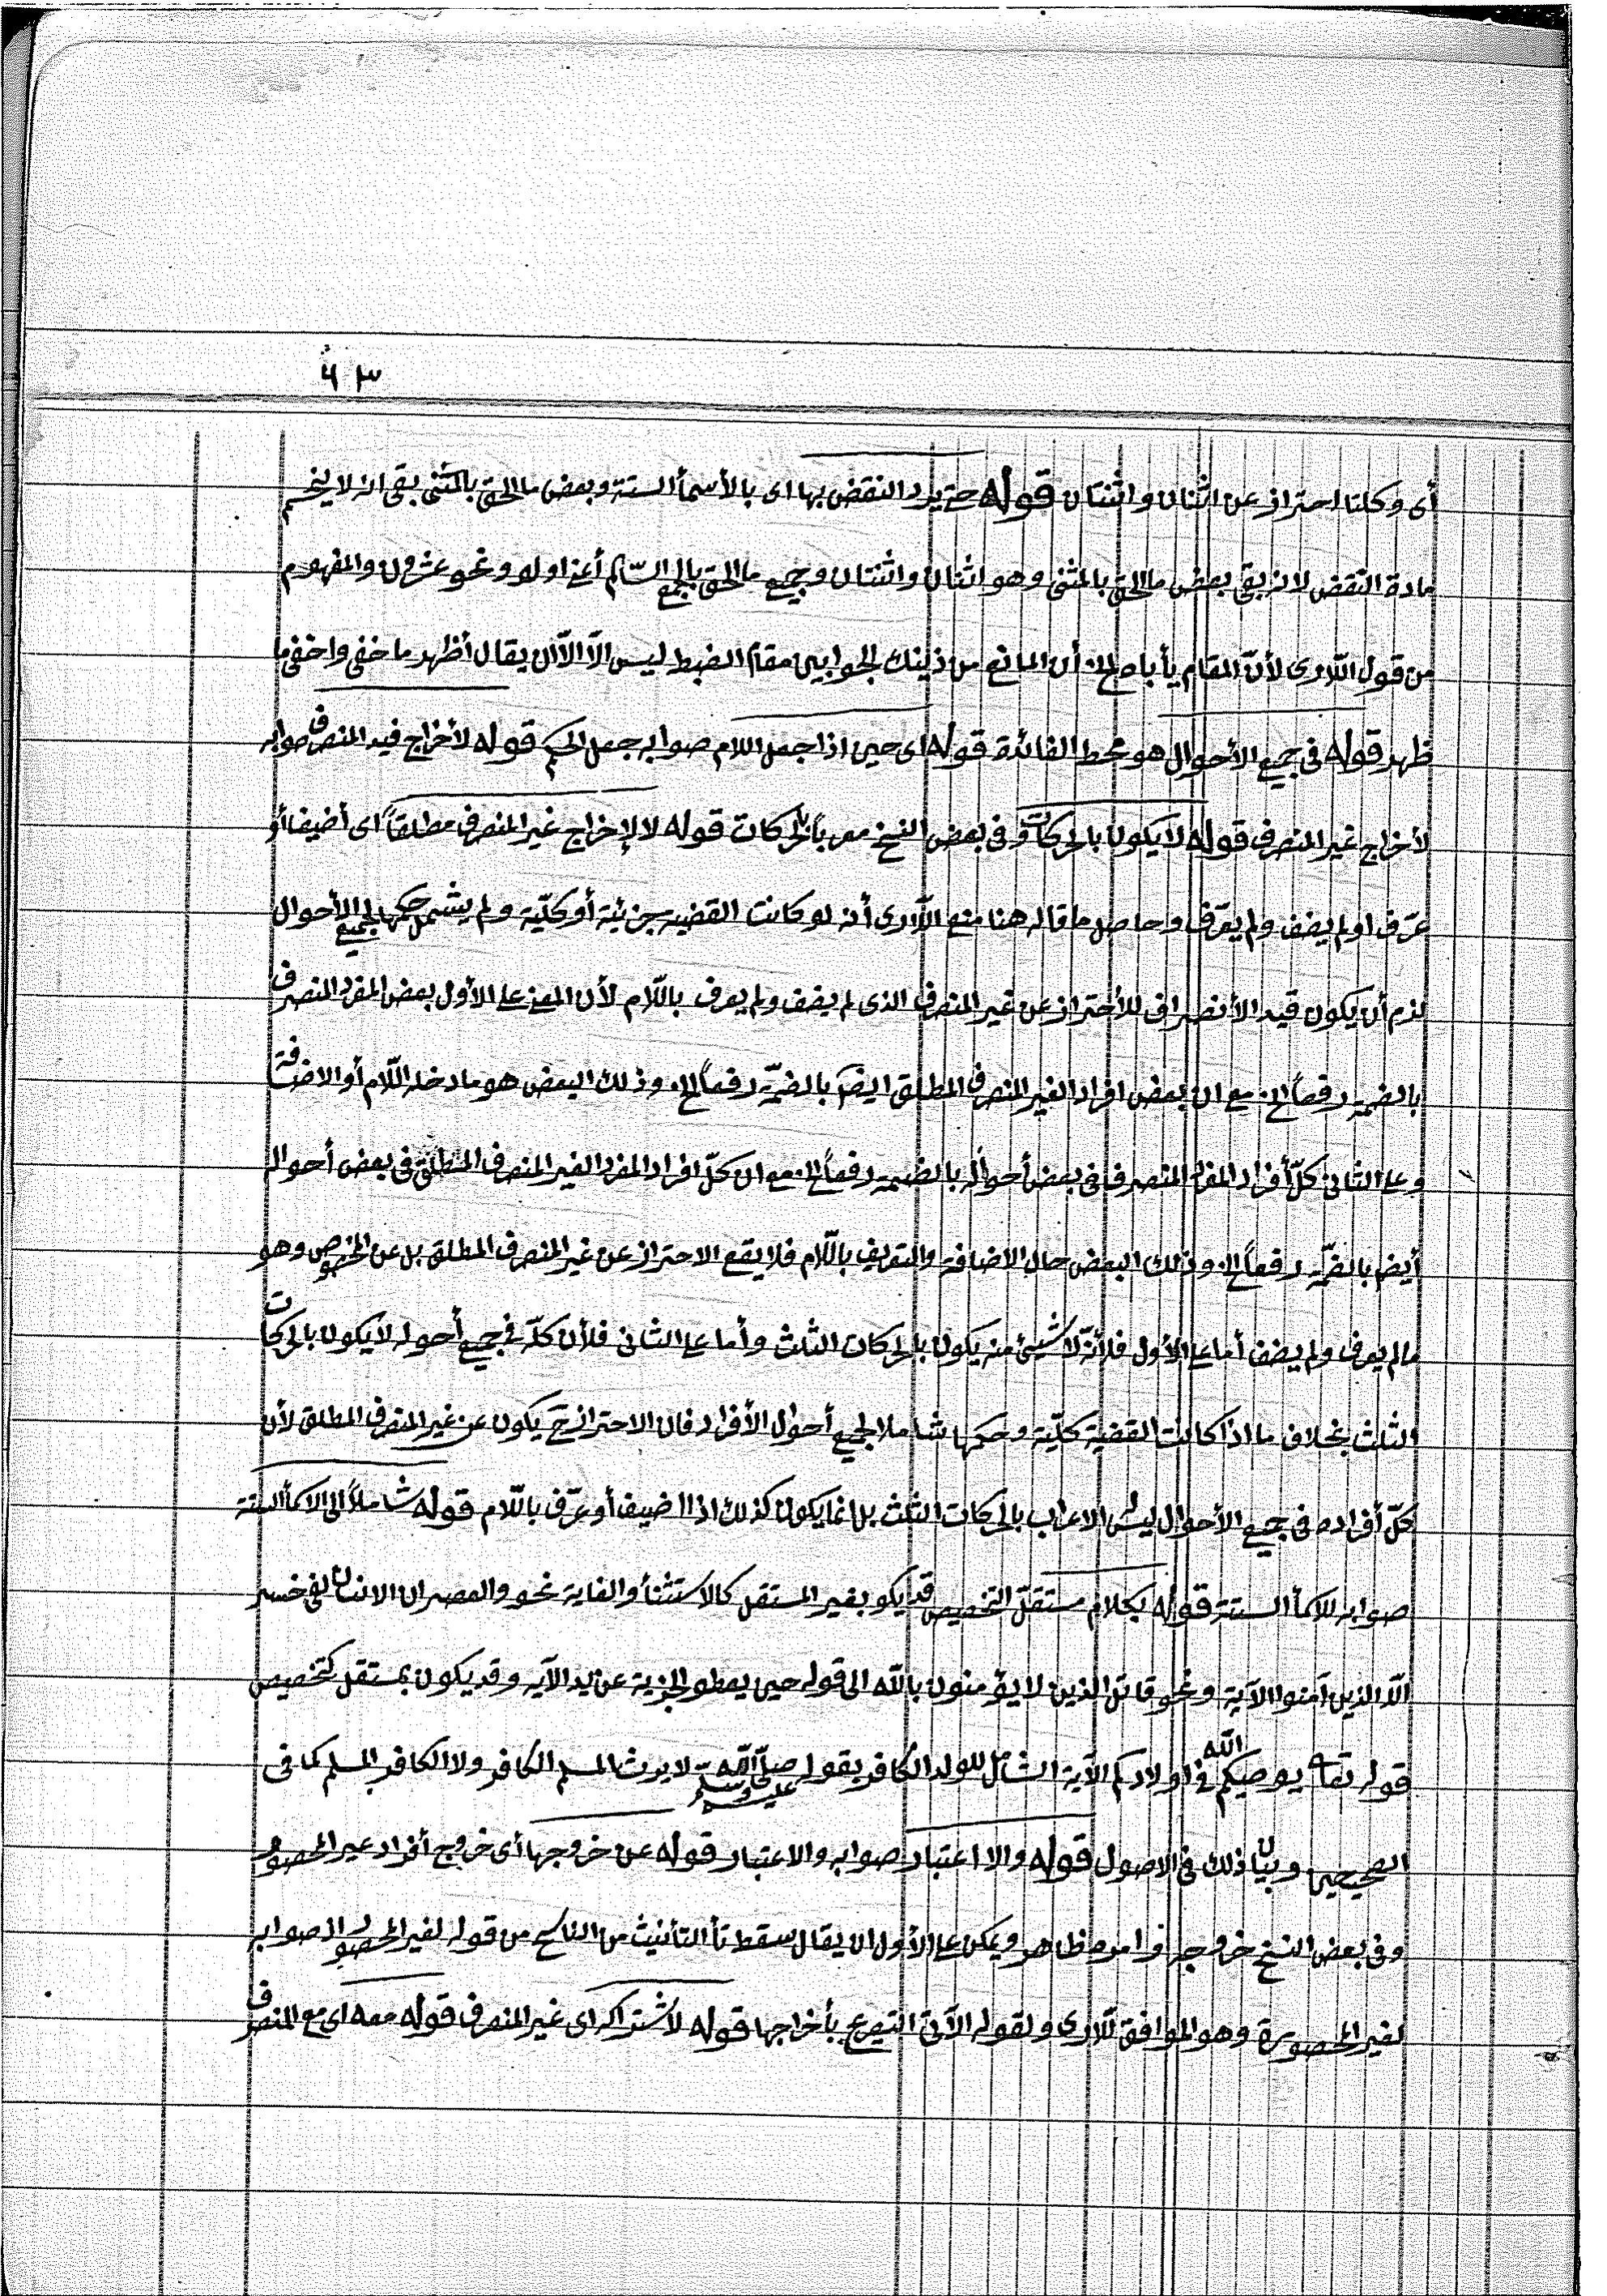 ٦٣
أى وكلتا احتراز عن اثنان واثنتان قوله حتى يرد النقض بها اى بالأسمأ الستة وبعض ما الحق بالمثنى بقى انه لا ينحسم
مادة النقض لانه بقى بعض ما الحق بالمثنى وهو اثنان واثنتان وجميع ما الحق بالجمع السّالم أعنى اولو ونحو عشرون والمفهوم
من قول اللّارى لأنّ المقام يأباه الخ أن المانع من ذينك الجوابين مقام الضبط ليس الّا الّا ان يقال أظهر ما خفى واخفى ما
ظهر قوله فى جميع الأحوال هو محط الفائدة قوله اى حين اذا جعل اللام صوابه جعل الحكم قوله لأخراج قيد المنصرف صوابه
لأخراج غير المنصرف قوله لا يكون بالحركات وفى بعض النسخ معربأ بالحركات قوله لا لإخراج غير المنصرف مطلقاً اى أضيف أو
عرّف او لم يضف ولم يعرّف وحاصل ما قاله هنا منع اللّارى أنه لو كانت القضيه جزئية أو كلّية ولم يشمل حكمها لجميع الأحوال
لزم أن يكون قيد الأنصراف للأحتراز عن غير المنصرف الذى لم يضف ولم يعرف باللّام لأن المعنى على الأول بعض المفرد المنصرف
بالضمة رفعاً الخ مع ان بعض افراد الغير المنصرف المطلق ايضَ بالضمّة رفعاً الخ وذلك البعض هو ما دخله اللّام أو الاضافة
وعلى الثانى كلّ أفراد المفرد المنصرف فى بعض أحواله بالضمة رفعاً الخ مع ان كلّ افراد المفرد الغير المنصرف المطلق فى بعض أحواله
أيضَ بالضمّة رفعاً الخ وذلك البعض حال الاضافة والتعريف باللّام فلا يقع الاحتراز عن غير المنصرف المطلق بل عن المخصوص وهو
مالم يعرف ولم يضف أما على الأول فلأنّه لا شيئ منه يكون بالحركات الثلث وأما على الثانى فلأن كلّه فى جميع أحواله لا يكون بالحركات
الثلث بخلاف ما اذا كانت القضية كلّية وحكمها شاملا لجميع أحوال الأفراد فان الاحتراز حَ يكون عن غير المنصرف المطلق لأن
كلّ أفراده فى جميع الأحوال ليس الاعراب بالحركات الثلث بل انما يكون كذلك اذا اضيف أو عرّف باللّام قوله شاملاً الى الاسمأ الستة
صوابه للاسمأ الستة قوله بكلام مستقلّ التخصيص قد يكو بغير المستقل كالاستثنأ والغاية نحو والعصر ان الانسان لفى خسر
الّا الذين آمنوا الآية ونحو قاتل الذين لا يؤمنون بالله الى قوله حين يعطو الجزية عن يد الآيه وقد يكون بمستقل كتخصيص
قوله تعالى يوصيكم الله فى اولادكم الآية الشامل للولد الكافر بقوله صلّى الله عليه وسلم لا يرث المسلم الكافر ولا الكافر المسلم كما فى
الصحيحين وبيان ذلك فى الاصول قوله والا اعتبار صوابه والاعتبار قوله عن خروجها أى خروج أفراد غير المحصور
وفى بعض النسخ خروجه وامره ظاهر ويمكن على الأول ان يقال سقط تأ التأنيث من الناسخ من قوله لغير المحصور اذ صوابه
لغير المحصورة وهو الموافق للّارى ولقوله الآتى التصريح بأخراجها قوله لاشتراكه اى غير المنصرف قوله معه اى مع المنصرف